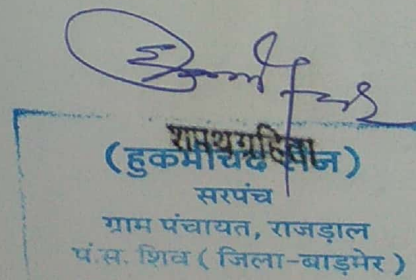 शपथग्रहिता
(हुकमीचंद जैन)
सरपंच
ग्राम पंचायत, राजड़ाल
पं.स. शिव (जिला-बाड़मेर)